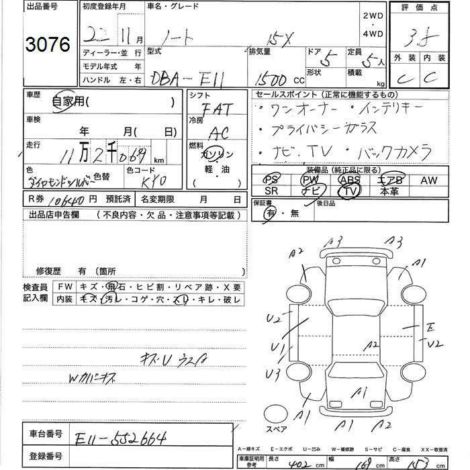 出品番号 3076
初度登録年月 22年11月
車名・グレード ノート 15X
2WD
4WD
評価点 3.5
外装 内装
C C
ディーラー・並行
モデル年式 年
ハンドル 左・右
型式 DBA-E11
排気量 1500 CC
ドア 5
形状
定員 5人
積載量 kg
車歴 自家用( )
車検 年 月( )
走行 11万2千069 km
色 ダイヤモンドシルバー
色替
色コード KY0
シフト FAT
冷房 AC
燃料 ガソリン
軽・油
セールスポイント(正常に機能するもの)
・ワンオーナー ・インテリキー
・プライバシーガラス
・ナビ、TV ・バックカメラ
装備品(純正品に限る)
PS PW ABS エアB AW
SR ナビ TV 本革
R券 10640円 預託済
名変期限 月 日
保証書 有・無
後日品
出品店申告欄 (不良内容・欠品・注意事項等記載)
修復歴 有 (箇所
検査員記入欄
FW キズ・飛石・ヒビ割・リペア跡・X・要
内装 キズ・汚レ・コゲ・穴・スレ・キレ・破レ
キズU ウスイ
Wカバーキズ
A3 A3
A2 A1
U2 E
V2 A2 U2
U3 A2
A1 A1 A1
スペア
A2
車台番号 E11-552664
登録番号
A-線キズ E-エクボ U-凹ミ W-補修跡 S-サビ C-腐食 XX-取替済
車庫証明用参考
長さ 402 cm
幅 169 cm
高さ 153 cm